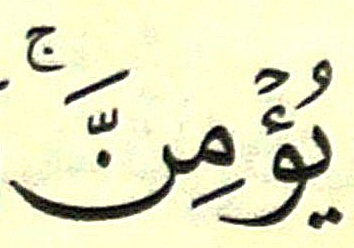 يُؤْمِنَّ ۚ